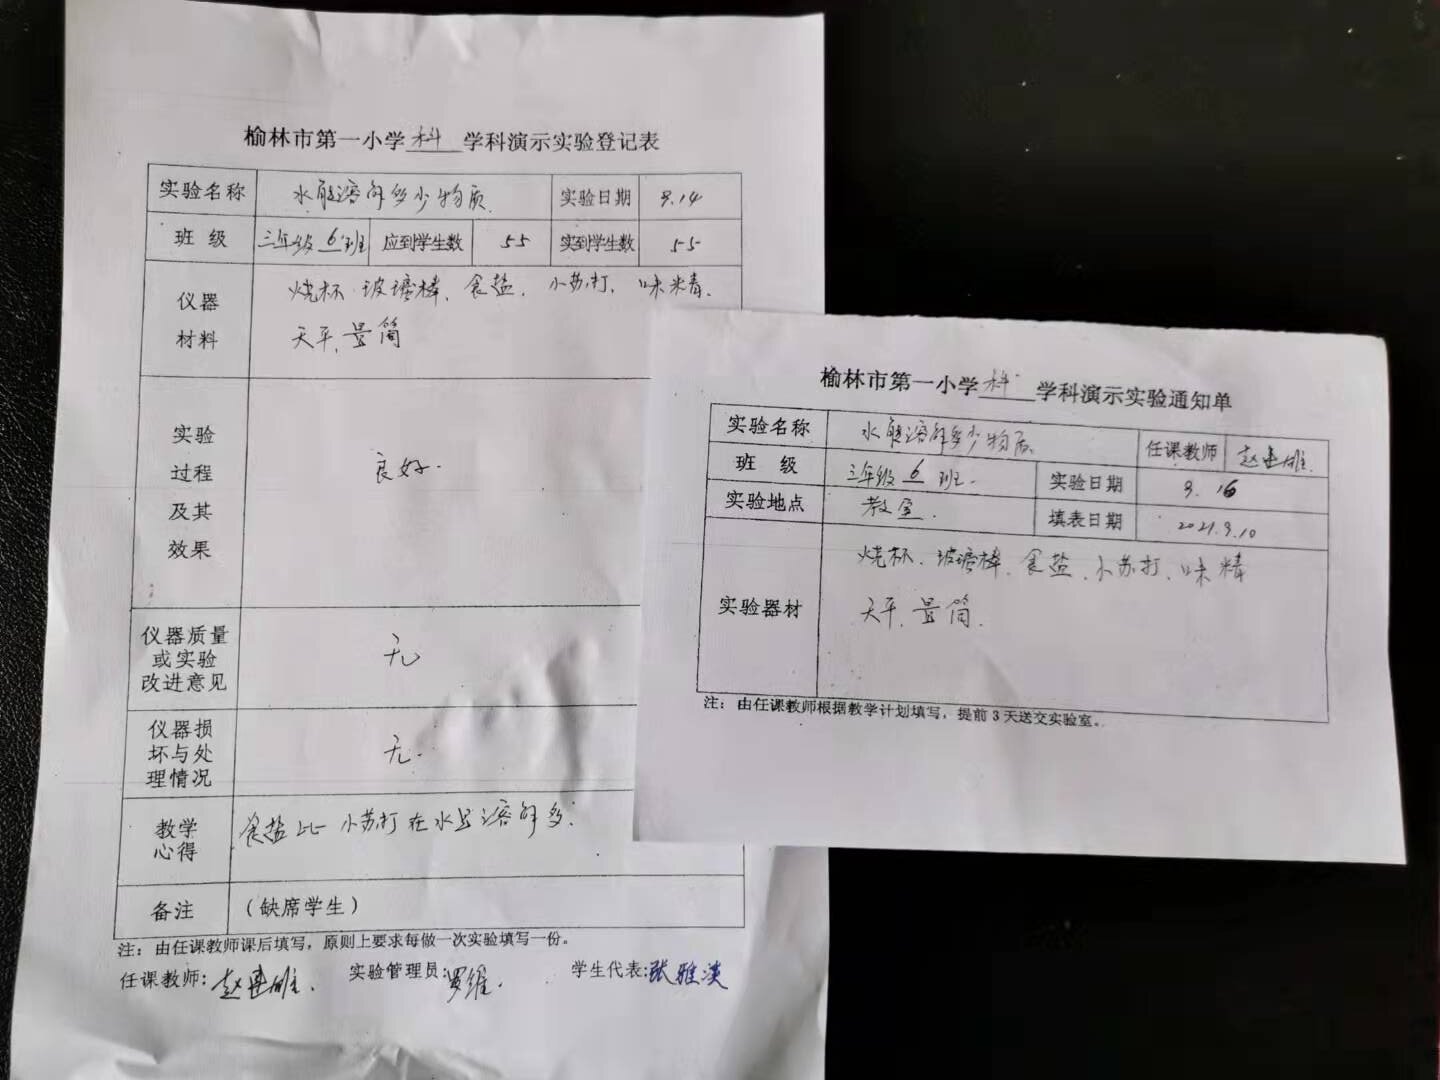 榆林市第一小学 科 学科演示实验登记表
实验名称 水能溶解多少物质 实验日期 9.14
班 级 三年级 6 班 应到学生数 55 实到学生数 55
仪器 烧杯 玻璃棒、食盐、小苏打、味精、
材料 天平、量筒
实验
过程 良好.
及其
效果
仪器质量
或实验 无
改进意见
仪器损
坏与处 无.
理情况
教学 食盐比小苏打在水里溶解多.
心得
备注 （缺席学生）
注：由任课教师课后填写，原则上要求每做一次实验填写一份。
任课教师: 赵建雄. 实验管理员: 罗维. 学生代表: 张雅淇
榆林市第一小学 科 学科演示实验通知单
实验名称 水能溶解多少物质 任课教师 赵建雄.
班 级 三年级 6 班. 实验日期 9.16
实验地点 教室. 填表日期 2021.9.10
烧杯、玻璃棒、食盐、小苏打、味精
实验器材 天平、量筒.
注：由任课教师根据教学计划填写，提前3天送交实验室。